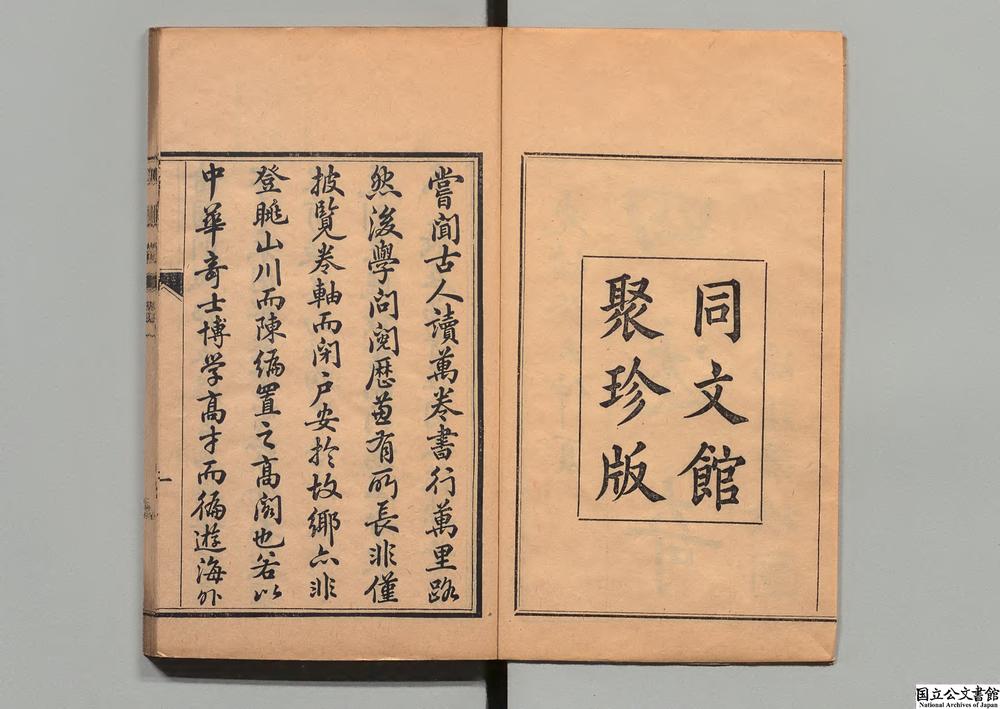 同文館
聚珍版
嘗聞古人讀萬卷書行萬里路
然後學問閱歷兼有所長非僅
披覽卷軸而閉户安於故鄉亦非
登眺山川而陳編置之高閣也若以
中華奇士博学高才而徧遊海外
国立公文書館
National Archives of Japan